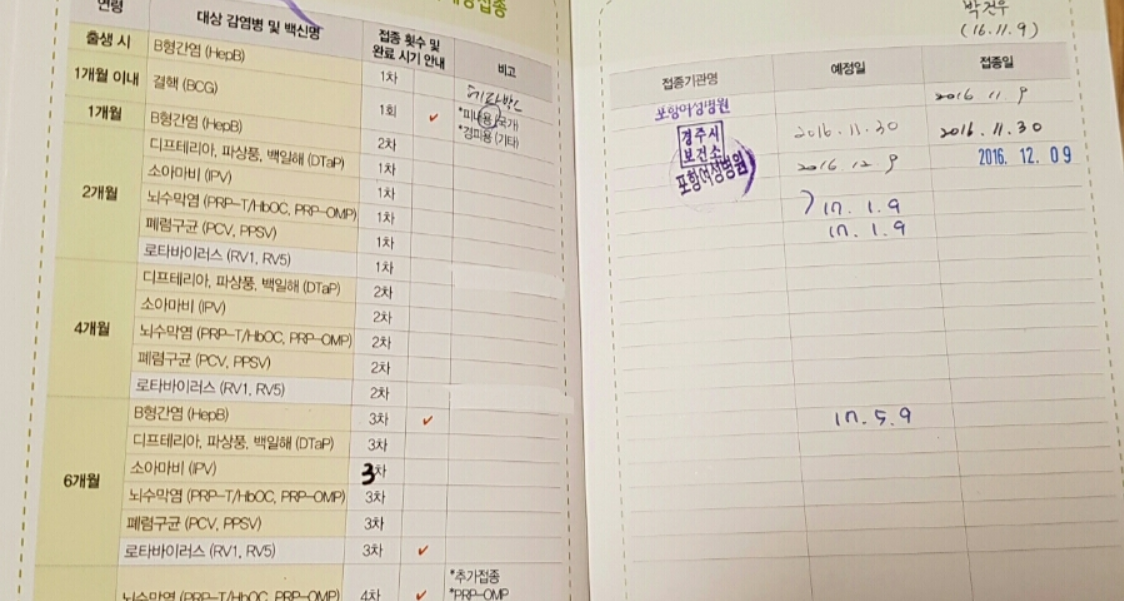 접종
연령 대상 감염병 및 백신명 접종 횟수 및 완료 시기 안내 비고
출생 시 B형간염 (HepB) 1차
1개월 이내 결핵 (BCG) 1회 ✓ *피내용 (국가) *경피용 (기타)
1개월 B형간염 (HepB) 2차
2개월 디프테리아, 파상풍, 백일해 (DTaP) 1차
소아마비 (IPV) 1차
뇌수막염 (PRP-T/HbOC, PRP-OMP) 1차
폐렴구균 (PCV, PPSV) 1차
로타바이러스 (RV1, RV5) 1차
4개월 디프테리아, 파상풍, 백일해 (DTaP) 2차
소아마비 (IPV) 2차
뇌수막염 (PRP-T/HbOC, PRP-OMP) 2차
폐렴구균 (PCV, PPSV) 2차
로타바이러스 (RV1, RV5) 2차
6개월 B형간염 (HepB) 3차 ✓
디프테리아, 파상풍, 백일해 (DTaP) 3차
소아마비 (IPV) 3차
뇌수막염 (PRP-T/HbOC, PRP-OMP) 3차
폐렴구균 (PCV, PPSV) 3차
로타바이러스 (RV1, RV5) 3차 ✓
뇌수막염 (PRP-T/HbOC, PRP-OMP) 4차 ✓ *추가접종
*PRP-OMP
박건우
(16.11.9)
접종기관명 예정일 접종일
포항여성병원 2016 11 9
경주시 보건소 2016.11.30 2016.11.30
포항여성병원 2016 12 9 2016. 12. 09
17. 1. 9
17. 1. 9
17. 5. 9